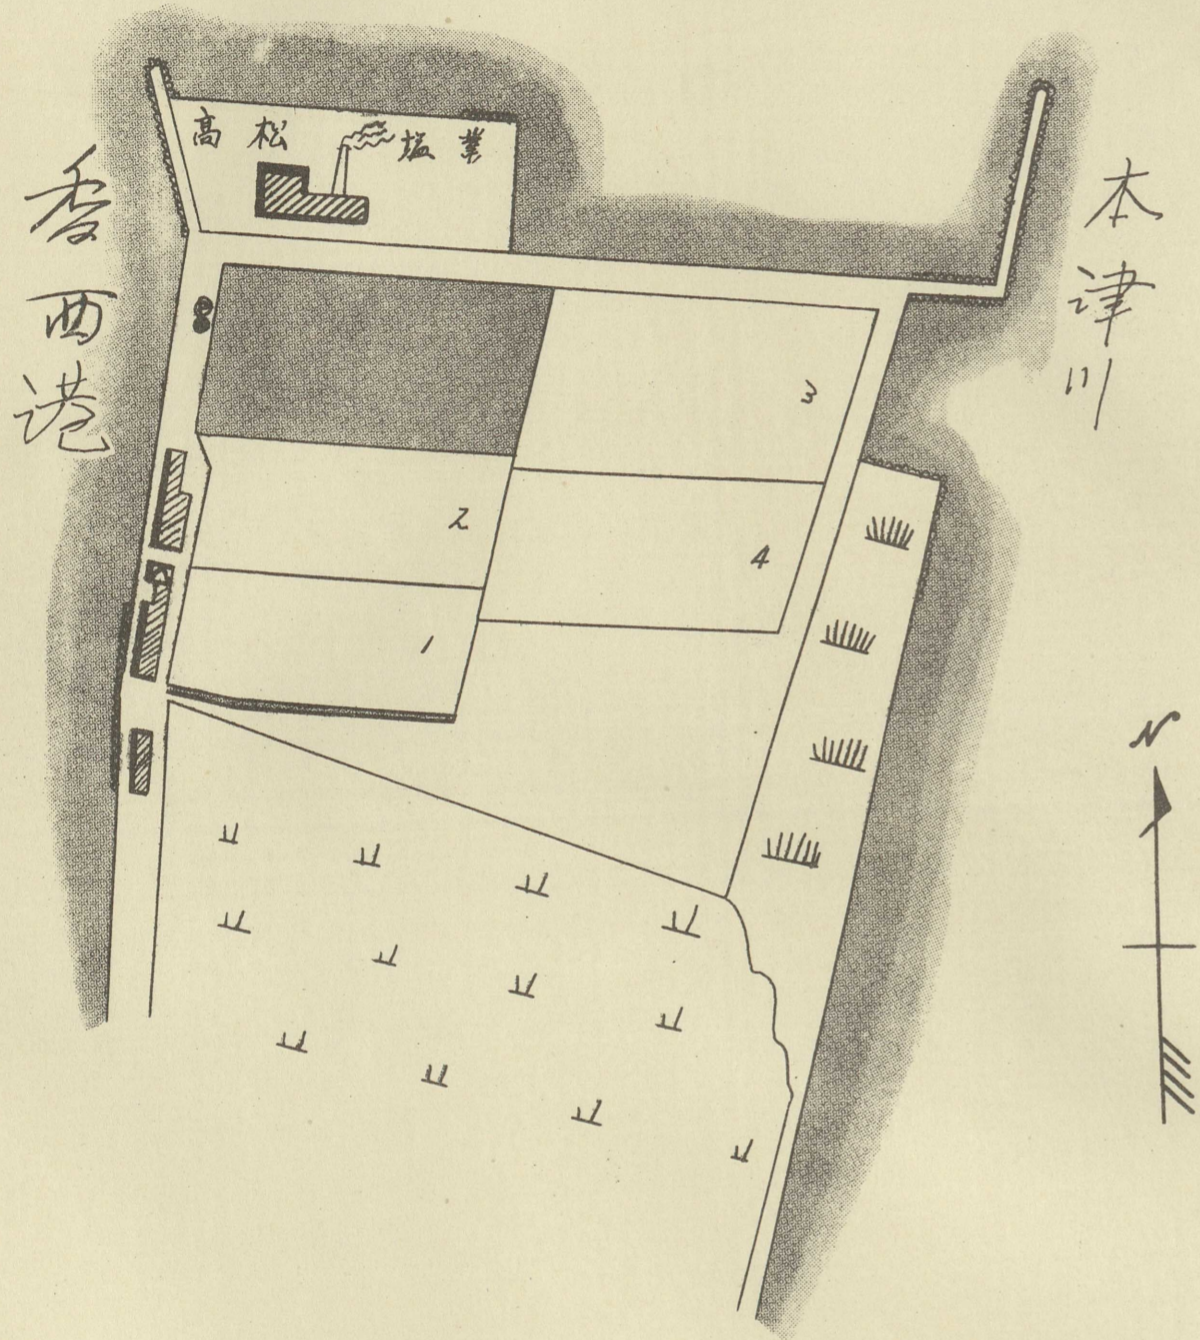 高松塩業
香西港
本津川
3
2
4
1
N